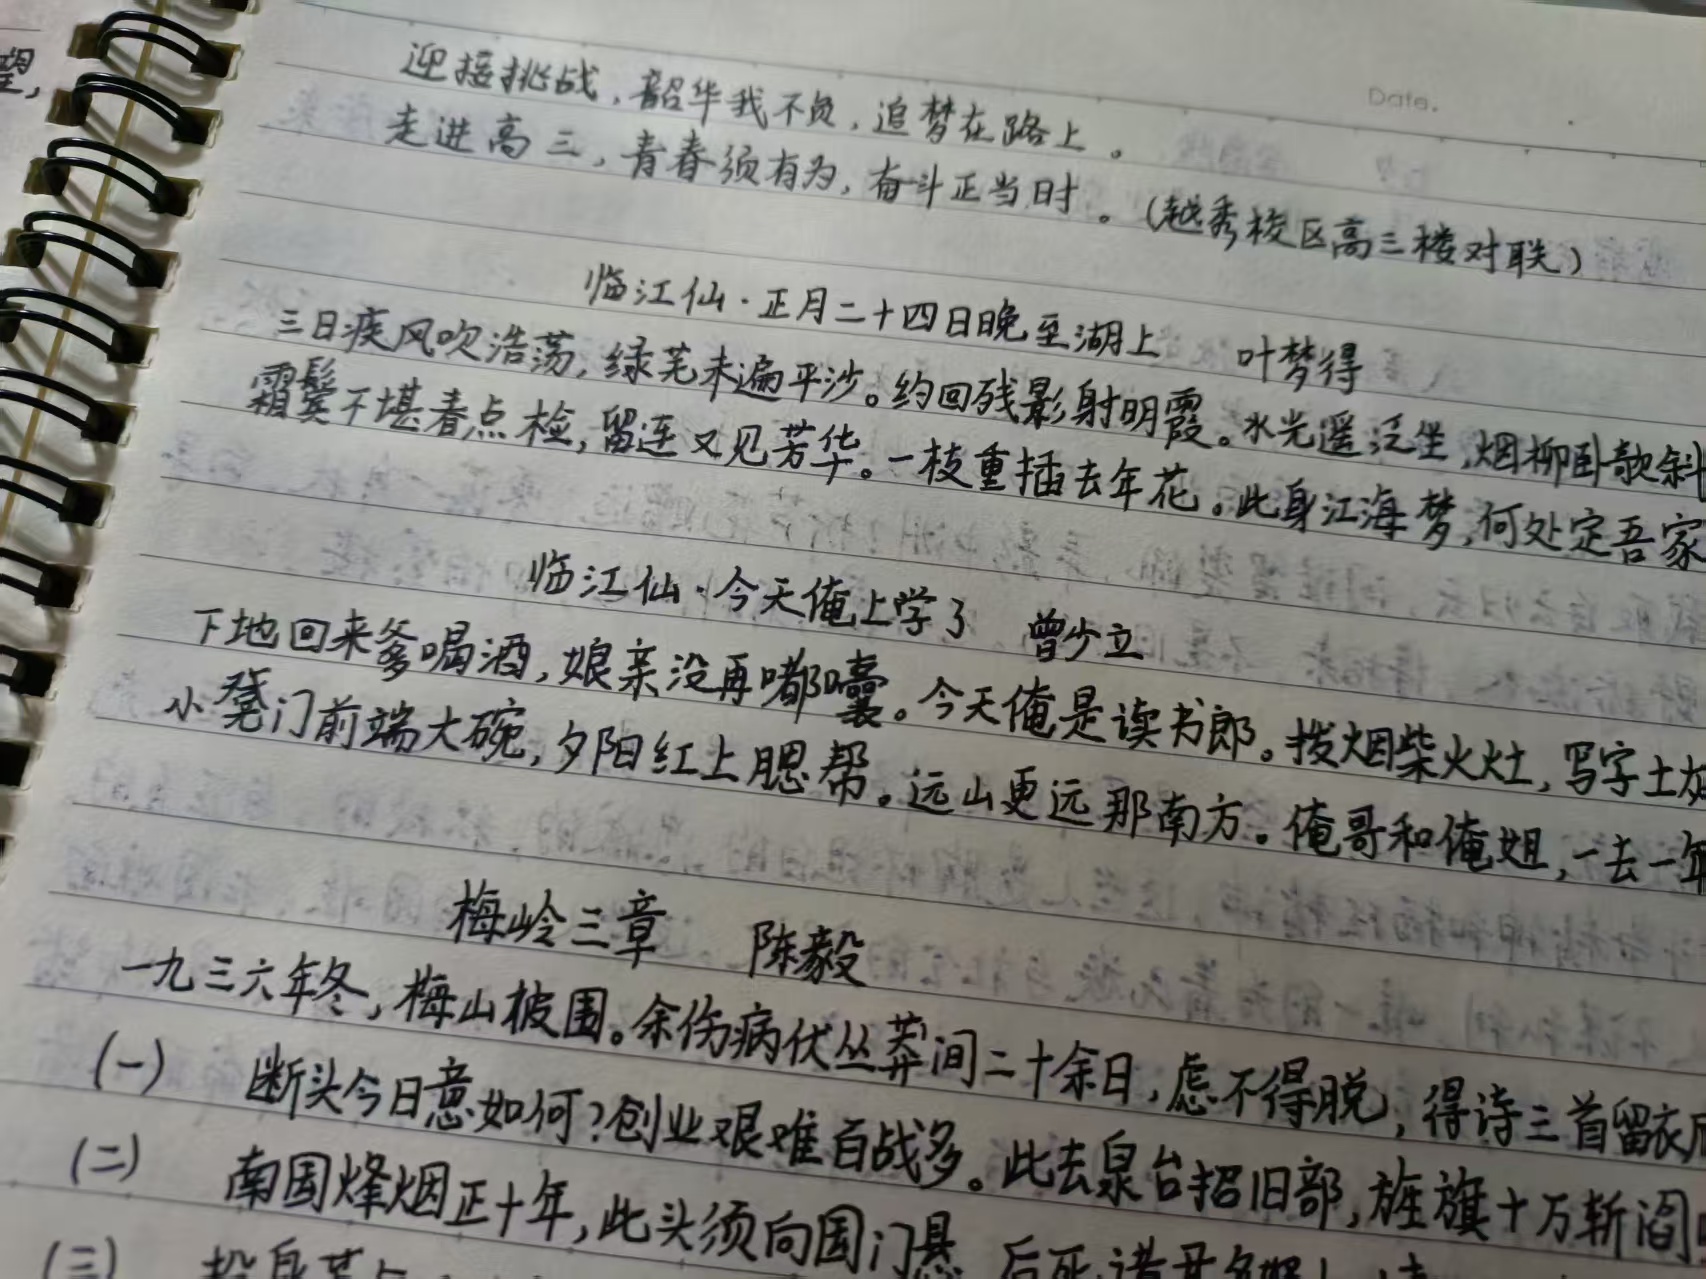 望,
Date.
迎接挑战，韶华我不负，追梦在路上。
走进高三，青春须有为，奋斗正当时。(越秀校区高三楼对联)
临江仙·正月二十四日晚至湖上 叶梦得
三日疾风吹浩荡，绿芜未遍平沙。约回残影射明霞。水光遥泛坐，烟柳卧欹斜
霜鬓不堪春点检，留连又见芳华。一枝重插去年花。此身江海梦，何处定吾家
临江仙·今天俺上学了 曾少立
下地回来爹喝酒，娘亲没再嘟囔。今天俺是读书郎。拨烟柴火灶，写字土
小凳门前端大碗，夕阳红上腮帮。远山更远那南方。俺哥和俺姐，一去一年
梅岭三章 陈毅
一九三六年冬，梅山被围。余伤病伏丛莽间二十余日，虑不得脱，得诗三首留衣
(一) 断头今日意如何？创业艰难百战多。此去泉台招旧部，旌旗十万斩阎
(二) 南国烽烟正十年，此头须向国门悬 后死诸
(三)